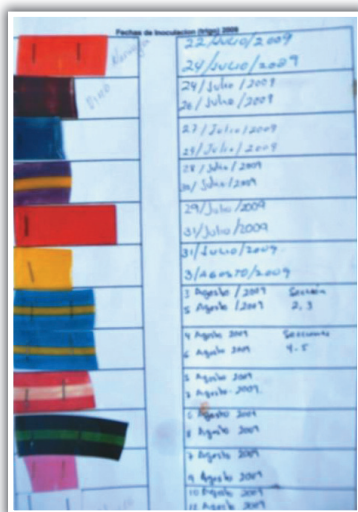 Fechas de Inoculacion (trigo) 2009
Naranja
22/Julio/2009
24/Julio/2009
Vino
24/Julio/2009
26/Julio/2009
27/Julio/2009
29/Julio/2009
28/Julio/2009
30/Julio/2009
29/Julio/2009
31/Julio/2009
31/Julio/2009
3/AGOSTO/2009
3 Agosto /2009 Sección
5 Agosto /2009 2,3
4 Agosto 2009 Secciones
6 Agosto 2009 4-5
5 Agosto 2009
Agosto 2009
6 Agosto 2009
8 Agosto 2009
7 Agosto 2009
9 Agosto 2009
10 Agosto 2009
12 Agosto 2009